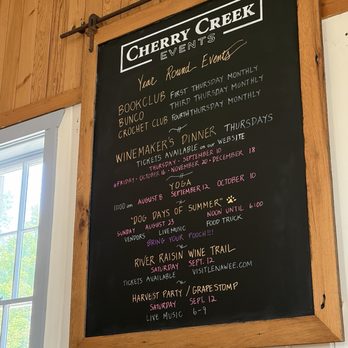 CHERRY CREEK
EVENTS
Year Round Events
BOOKCLUB FIRST THURSDAY MONTHLY
BUNCO THIRD THURSDAY MONTHLY
CROCHET CLUB FOURTH THURSDAY MONTHLY
WINEMAKER'S DINNER THURSDAYS
TICKETS AVAILABLE on our WEBSITE
THURSDAY - SEPTEMBER 10
*FRIDAY - OCTOBER 16 - NOVEMBER 20 - DECEMBER 18
YOGA
11:00 am AUGUST 8 SEPTEMBER 12 OCTOBER 10
"DOG DAYS OF SUMMER"
SUNDAY AUGUST 23 NOON UNTIL 6:00
VENDORS LIVE MUSIC FOOD TRUCK
BRING YOUR POOCH!!!
RIVER RAISIN WINE TRAIL
SATURDAY SEPT. 12
TICKETS AVAILABLE VISITLENAWEE.COM
HARVEST PARTY / GRAPE STOMP
SATURDAY SEPT. 12
LIVE MUSIC 6-9